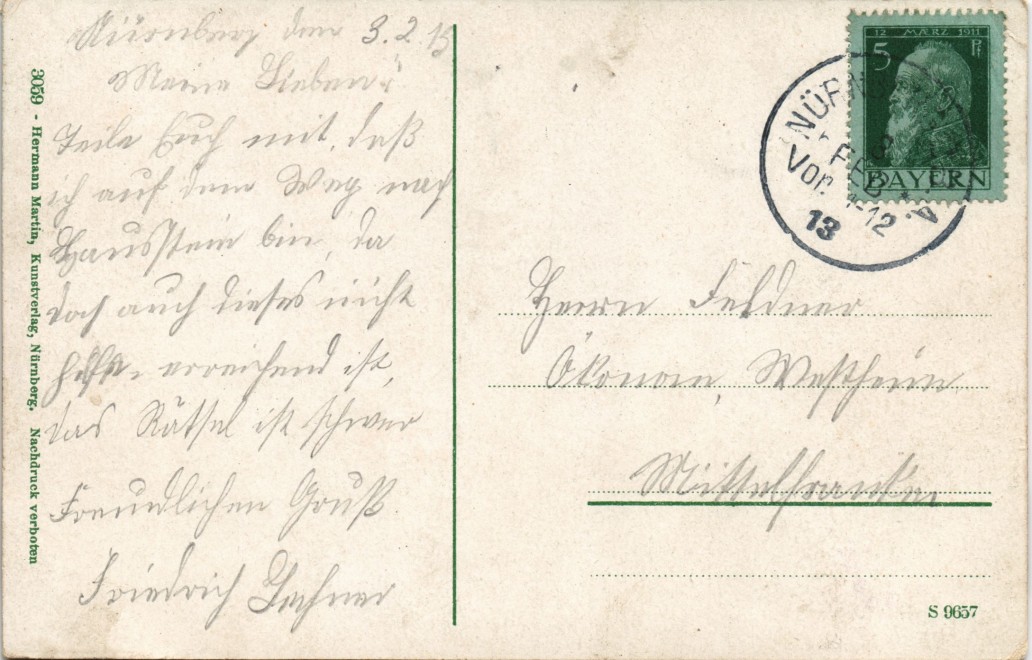 Nürnberg den 3.2.13
Meine Lieben!
Teile Euch mit, daß
ich auf dem Weg nach
Hausstein bin, da
doch auch dieses nicht
erreichend ist,
das Rätsel ist schwer
Freundlichen Gruß.
Friedrich Lechner
3059 - Hermann Martin, Kunstverlag, Nürnberg. Nachdruck verboten
12 MÆRZ 1911
5 Pf
BAYERN
NÜRN
3 FEB
Vor. 11-12
13
Herrn Feldner
Ökonom, Westheim
Mittelfranken
S 9657